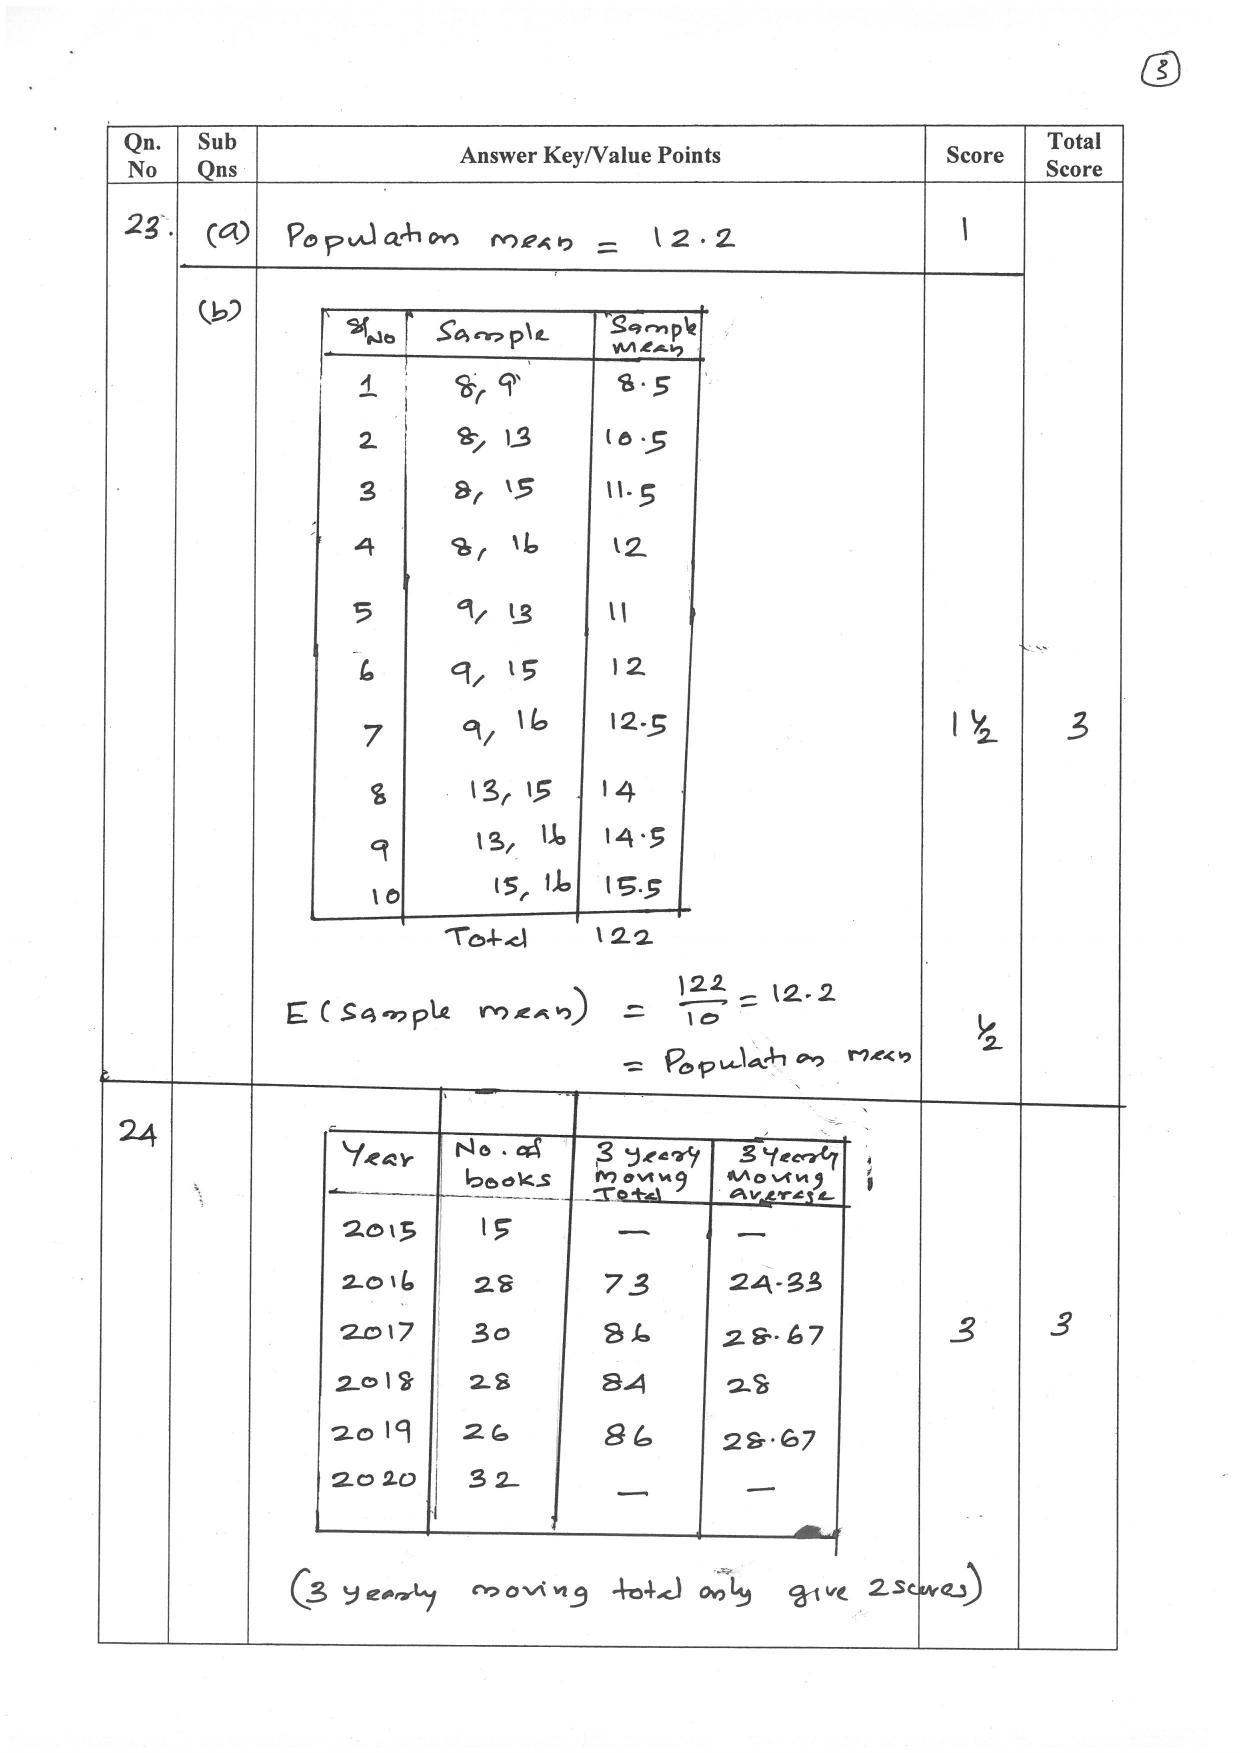 3
Qn. No Sub Qns Answer Key/Value Points Score Total Score
23. (a) Population mean = 12.2 1
(b)
Sl No Sample Sample mean
1 8, 9 8.5
2 8, 13 10.5
3 8, 15 11.5
4 8, 16 12
5 9, 13 11
6 9, 15 12
7 9, 16 12.5 1½ 3
8 13, 15 14
9 13, 16 14.5
10 15, 16 15.5
Total 122
E (Sample mean) = 122/10 = 12.2
= Population mean ½
24
Year No. of books 3 yearly moving Total 3 Yearly Moving average
2015 15 — —
2016 28 73 24.33
2017 30 86 28.67 3 3
2018 28 84 28
2019 26 86 28.67
2020 32 — —
(3 yearly moving total only give 2 scores)